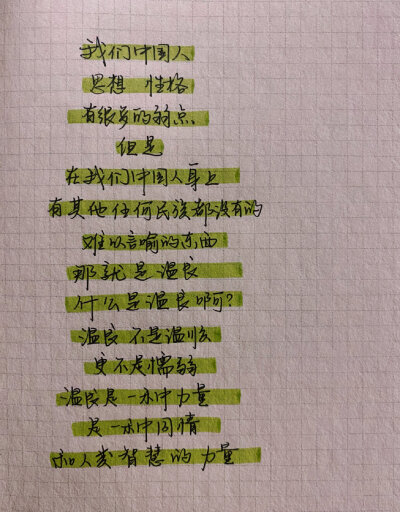 我们中国人
思想 性格
有很多的弱点
但是
在我们中国人身上
有其他任何民族都没有的
难以言喻的东西
那就是温良
什么是温良啊？
温良 不是温怯
更不是懦弱
温良是一种力量
是一种同情
和人类智慧的力量